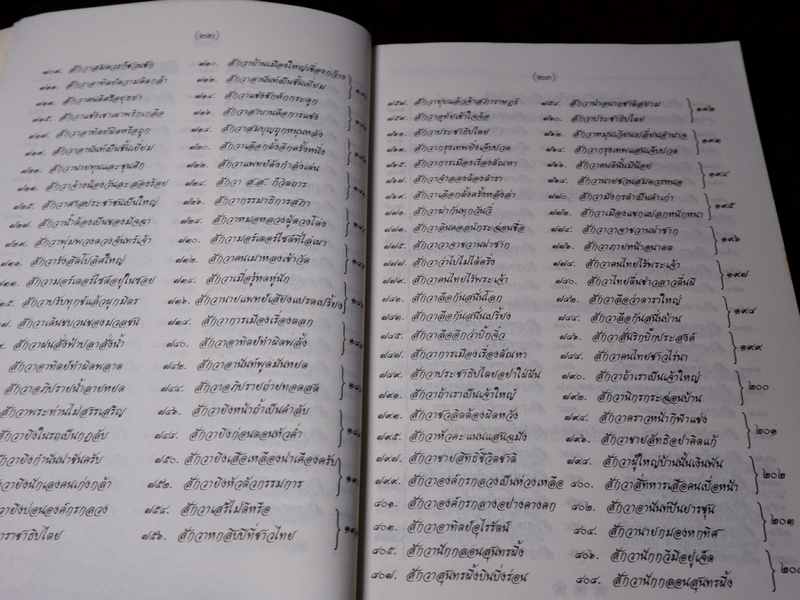 (๒๒)
๗๑๐. สักวาบ้านเมืองใหญ่เรื่องกว้าง
สักวาอาทิตย์ความคิดกล้า
๗๑๒. สักวาอานันท์เป็นชั้นเยี่ยม
สักวาคนดีศรีอยุธยา
๗๑๔. สักวาแข่งชักหักกระดูก
๗๑๖. สักวาสาบานคือการแช่ง
สักวาอาทิตย์ผิดหรือถูก
๗๑๘. สักวาสมบุญถูกหมุนหลัง
สักวาอานันท์เป็นชั้นเยี่ยม
๗๒๐. สักวาเลือกตั้งอีกครั้งหนึ่ง
สักวานายทุนและขุนศึก
๗๒๒. สักวาแพทย์ดังกำลังเด่น
สักวาจ้างน้องวันละสองร้อย
๗๒๔. สักวา ส.ส. ก็วัดการ
๗๒๕. สักวาศาลประชาชนเป็นใหญ่
๗๒๖. สักวากรรมาธิการสภา
๗๒๗. สักวาน้ำต้องเป็นของมัจฉา
๗๒๘. สักวาหมอหลวงผู้ดวงโด่ง
๗๒๙. สักวาพุ่มพวงดวงจันทร์เจ้า
๗๓๐. สักวามอร์เตอร์ไซด์ที่ไล่เผา
๗๓๒. สักวาคนเมาหลงเข้าวัด
สักวามอร์เตอร์ไซด์อยู่ในซอย
๗๓๔. สักวาเมื่อรู้หดหู่นัก
สักวาปริปทุกข์แล้วผูกมิตร
๗๓๖. สักวานายแพทย์เสียงแปรดเปรี้ยง
สักวาเดินขบวนของมวลชน
๗๓๘. สักวาการเมืองเรื่องตลก
สักวาฝนสั่งฟ้าปลาสั่งน้ำ
๗๔๐. สักวาอาทิตย์ทำผิดพลั้ง
สักวาอาทิตย์ทำผิดพลาด
๗๔๒. สักวาอานันท์พูดมันหยด
สักวาอภิปรายน้ำลายหยด
๗๔๔. สักวาอภิปรายถ่ายทอดสด
สักวาพระท่านไม่สรรเสริญ
๗๔๖. สักวายิงหน้าถ้าเป็นลำลับ
สักวายิงในรถเป็นกฎลับ
๗๔๘. สักวายิงก่อนตอนหัวค่ำ
สักวายิงกำนันน่าขันครับ
๗๕๐. สักวายิงเสือเหลืองน่าเคืองครับ
สักวายิงนักเลงคนเก่งกล้า
๗๕๒. สักวายิงหัวตัวกรรมการ
สักวายิงบ่อนองค์กรกลวง
๗๕๔. สักวาเสรีไม่ดีหรือ
๗๕๖. สักวาหกสิบปีที่ชาวไทย
(๒๓)
๗๕๗. สักวายุบแล้วจ้าสภาราษฎร์
๗๕๘. สักวาน่าอนาถชาติสยาม
๑๙๒
๗๕๙. สักวาอุทัยเข้าใจจ้อ
๗๖๐. สักวาประชาธิปไตย
๗๖๑. สักวาประชาธิปไตย
๗๖๒. สักวาหมุนเวียนเปลี่ยนอำนาจ
๑๙๓
๗๖๓. สักวากรุงเทพยิ่งเจ็บปวด
๗๖๔. สักวากรุงเทพแสนเจ็บปวด
๗๖๕. สักวาการเมืองเรื่องตัณหา
๗๖๖. สักวาคนดีนั้นมีน้อย
๑๙๔
๗๖๗. สักวาจำลองต้องตำรา
๗๖๘. สักวานายชวนสมควรหนอ
๗๖๙. สักวาเลือกตั้งครั้งหลังล่า
๗๗๐. สักวามังกรดำเป็นเก่า
๑๙๕
๗๗๑. สักวาฝากันทุกวันวี่
๗๗๒. สักวาเมืองแขกแปลกหนักหนา
๗๗๓. สักวาต้นคลอนักระฉ่อนชื่อ
๗๗๔. สักวาวาจาชวนฝาซาก
๑๙๖
๗๗๕. สักวาวาจาชวนฝาซาก
๗๗๖. สักวาภายหน้าอนาคต
๗๗๗. สักวาว่าไปไม่ได้ครึ่ง
๗๗๘. สักวาคนไทยไร้พระเจ้า
๑๙๗
๗๗๙. สักวาคนไทยไร้พระเจ้า
๗๘๐. สักวาไทยตื่นข่าวสาวตื่นผี
๗๘๑. สักวาลือกันสนั่นโลก
๗๘๒. สักวาลือว่าดาราใหญ่
๑๙๘
๗๘๓. สักวาลือกันสนั่นเปรี้ยง
๗๘๔. สักวาลือกันสนั่นบ้าน
๗๘๕. สักวาลืออีกว่าบิ๊กจิ๋ว
๗๘๖. สักวาสันริกบิ๊กประสงค์
๑๙๙
๗๘๗. สักวาการเมืองเรื่องตัณหา
๗๘๘. สักวาคนไทยชาวไร่นา
๗๘๙. สักวาประชาธิปไตยอย่าใฝ่ฝัน
๗๙๐. สักวาถ้าเราเป็นเจ้าใหญ่
๒๐๐
๗๙๑. สักวาถ้าเราเป็นเจ้าใหญ่
๗๙๒. สักวานักรกระฉ่อนบ้าน
๗๙๓. สักวาชวลิตต้องผิดหวัง
๗๙๔. สักวาคราวหน้ากีฬาแข่ง
๒๐๑
๗๙๕. สักวาหัวคะแนนแสนจมัง
๗๙๖. สักวาขายสิทธิ์อย่าคิดแก้
๗๙๗. สักวาขายสิทธิ์ชีวิตชาติ
๗๙๘. สักวาผู้ใหญ่บ้านนั้นเงินพัน
๒๐๒
๗๙๙. สักวาองค์กรกลวงเป็นห่วงเหลือ
๘๐๐. สักวาสี่ทหารเสือคนเบื่อหน้า
๘๐๑. สักวาองค์กรกลางอย่างคางคก
๘๐๒. สักวาอานันท์ปันยารชุน
๒๐๓
๘๐๓. สักวาอาทิตย์อุไรรัตน์
๘๐๔. สักวานายกมองหกทิศ
๘๐๕. สักวานักกลอนสุนทรผึ้ง
๘๐๖. สักวานักกวีมีอยู่เจ็ด
๘๐๗. สักวาสุนทรผึ้งบินบึ่งร่อน
๘๐๘. สักวานักกลอนสุนทรผึ้ง